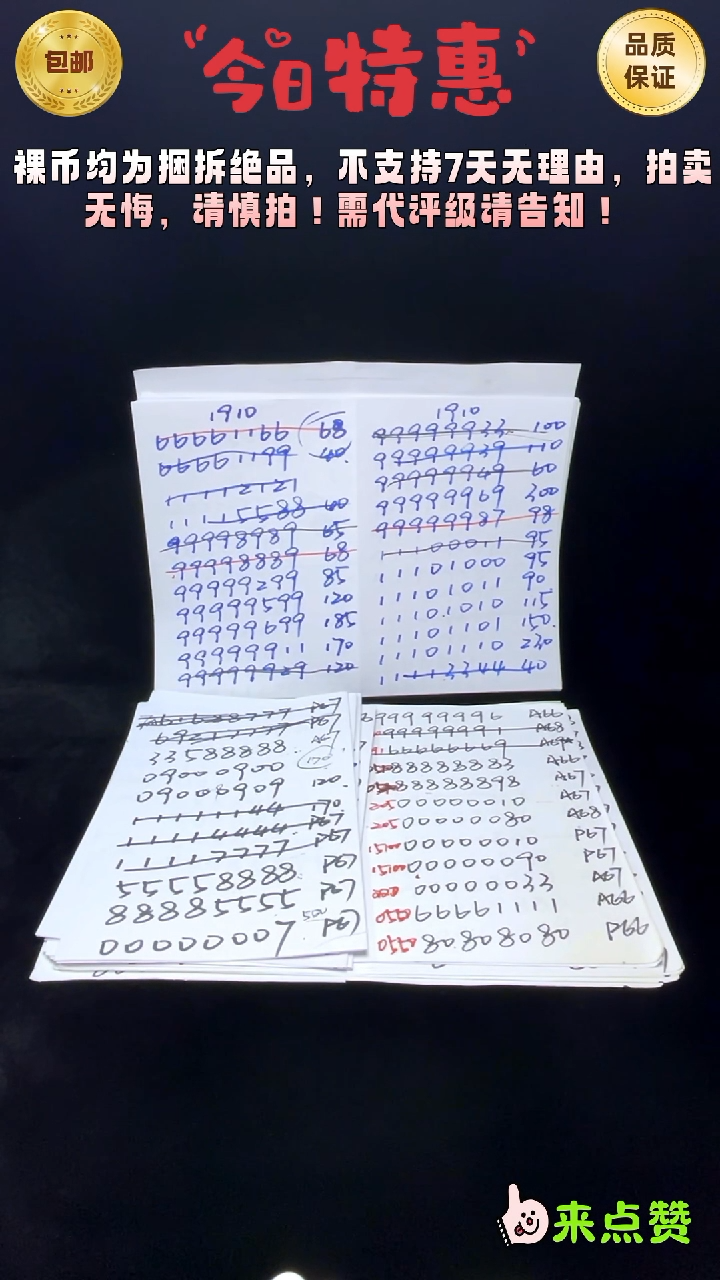 包邮
今日特惠
品质
保证
裸币均为捆拆绝品，不支持7天无理由，拍卖
无悔，请慎拍！需代评级请告知！
1910
66661166 68
66661199 40.
11112121
11115588 60
99998989 65
99998889 68
99999299 85
99999599 120
99999699 185
99999911 170
99999929 120
1910
99999933 100
99999939 110
99999949 60
99999969 300
99999987 98
11100011 95
11101000 95
11101011 90
11101010 115
11101101 150.
11101110 230
11113344 40
P67
P67
33588888 A67
09000900 170
09008909 120.
11111144 170
11114444 P67
11117777 P67
55558888 P67
88885555 P67
00000007 500 P67
99999996 A66
99999991 A68
66666669
88888883 A66
88888898 A67
205 00000010 A67
205 00000080 A68
15100 00000010
15100 00000090 P67
00000033 A67
0590 99991111 A66
0520 80808080 P66
来点赞